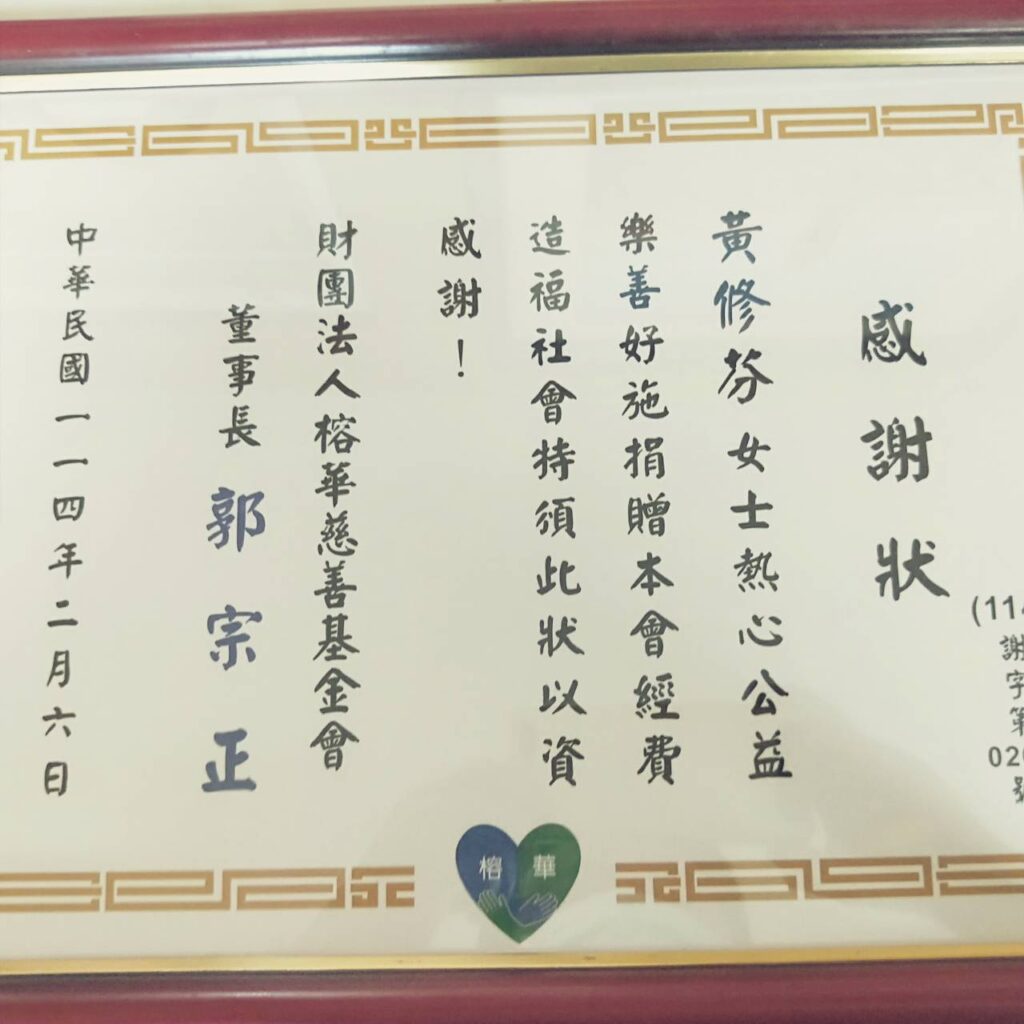 感謝狀
(114
謝字第
020
號
黃修芬女士熱心公益
樂善好施捐贈本會經費
造福社會特須此狀以資
感謝！
財團法人榕華慈善基金會
董事長 郭宗正
中華民國一一四年二月六日
榕華